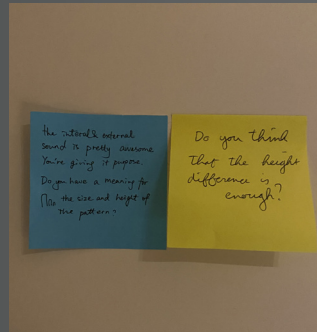 the internal & external
sound is pretty awesome
You're giving it pupose.
Do you have a meaning for
the size and height of
the pattern"
Do you think
That the height
difference is
enough?